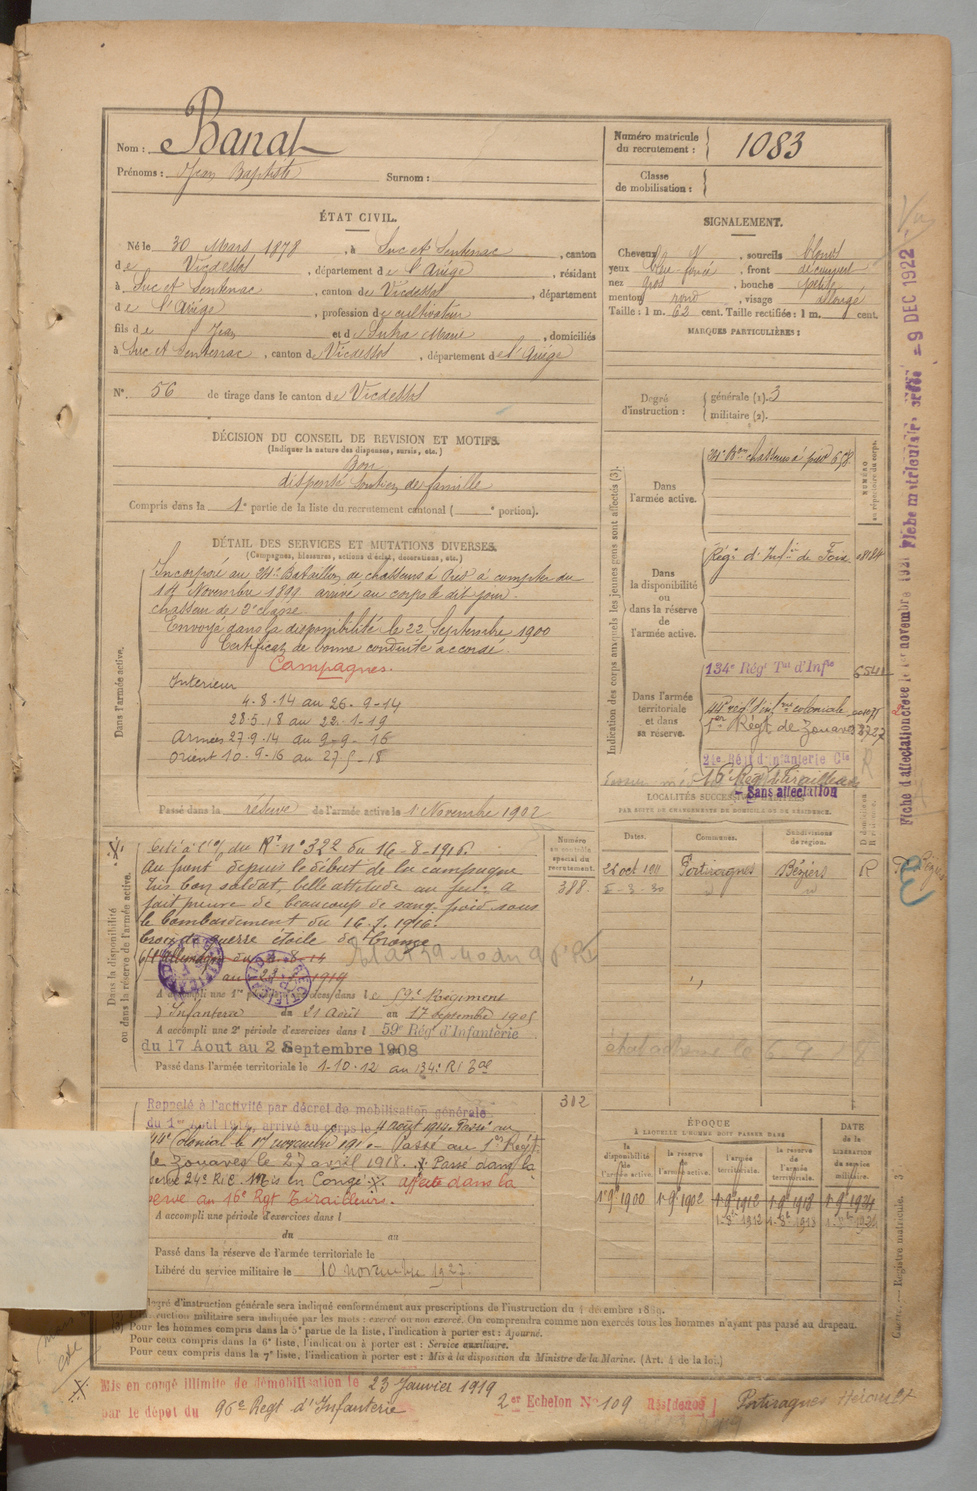 Nom : Banat
Prénoms : Jean Baptiste Surnom :
Numéro matricule du recrutement : 1083
Classe de mobilisation :
ÉTAT CIVIL.
Né le 30 Mars 1878, à Suc et Sentenac, canton
de Vicdessos, département de l'Ariège, résidant
à Suc et Sentenac, canton de Vicdessos, département
de l'Ariège, profession de cultivateur
fils de Jean et de Marie, domiciliés
à Suc et Sentenac, canton de Vicdessos, département de l'Ariège
N° 56 de tirage dans le canton de Vicdessos
SIGNALEMENT.
Cheveux, sourcils blonds
yeux bleu-foncé, front découvert
nez gros, bouche petite
menton rond, visage allongé
Taille : 1 m. 62 cent. Taille rectifiée : 1 m. cent.
MARQUES PARTICULIÈRES :
Degré d'instruction : générale (1). 3
militaire (2).
DÉCISION DU CONSEIL DE REVISION ET MOTIFS.
(Indiquer la nature des dispenses, sursis, etc.)
Bon
dispensé soutien de famille
Compris dans la 1e partie de la liste du recrutement cantonal ( e portion).
DÉTAIL DES SERVICES ET MUTATIONS DIVERSES.
(Campagnes, blessures, actions d'éclat, décorations, etc.)
Dans l'armée active.
Incorporé au 34e Bataillon de chasseurs à pied à compter du
Novembre 1899 arrivé au corps le dit jour.
chasseur de 2e classe
Envoyé dans la disponibilité le 22 Septembre 1900
Certificat de bonne conduite accordé.
Campagnes.
Intérieur
4-8-14 au 26-9-14
28-5-18 au 22-1-19
Armées 27-9-14 au 9-9-16
Orient 10-9-16 au 27-5-18
Passé dans la réserve de l'armée active le 1 Novembre 1902
Indication des corps auxquels les jeunes gens sont affectés (3).
NUMÉRO au répertoire du corps.
Dans l'armée active.
34e Bon chasseurs à pied 698
Dans la disponibilité ou dans la réserve de l'armée active.
Régt d'Infie de Foix
Dans l'armée territoriale et dans sa réserve.
134e Régt Tal d'Infie
44e régt d'infrie coloniale
1er Régt de Zouaves
24e Régt d'Infanterie Cle
16e Régt Tirailleurs
Sans affectation
LOCALITÉS SUCCESSIVES HABITÉES
PAR SUITE DE CHANGEMENTS DE DOMICILE OU DE RÉSIDENCE.
Dates. Communes. Subdivisions de région.
26 oct 1911 Portiragnes Béziers R
Dans la disponibilité ou dans la réserve de l'armée active.
Numéro au contrôle spécial du recrutement.
388.
Cité à l'o/ du Rt n° 322 du 16-8-1916.
Au front depuis le début de la campagne
très bon soldat, belle attitude au feu. A
fait preuve de beaucoup de sang froid sous
le bombardement du 16-7-1916.
Croix de guerre étoile de bronze
c/ l'Allemagne du 4-8-14
au 22-1-1919
RECTIFICATION
A accompli une 1re période d'exercices dans le 59e Régiment
d'Infanterie du 21 Août au 17 septembre 1905
A accompli une 2e période d'exercices dans le 59e Rég d'Infanterie
du 17 Aout au 2 Septembre 1908
Passé dans l'armée territoriale le 1-10-12 au 134e RI Tal
312
Rappelé à l'activité par décret de mobilisation générale
du 1er Août 1914, arrivé au corps le 4 août 1914. Passé au
44e Colonial le 17 novembre 191. - Passé au 1er Régt
de Zouaves le 27 avril 1918. Passé dans la
serve 24e R.I.C. Mis en Congé. affecté dans la
serve au 16e Rgt Tirailleurs.
A accompli une période d'exercices dans l
du au
Passé dans la réserve de l'armée territoriale le
Libéré du service militaire le 10 novembre 1927.
ÉPOQUE
À LAQUELLE L'HOMME DOIT PASSER DANS
DATE de la LIBÉRATION du service militaire.
la disponibilité de l'armée active. la réserve de l'armée active. l'armée territoriale. la réserve de l'armée territoriale.
1-9bre 1900 1-9bre 1902 1-9bre 1912 1-9bre 1918 1-9bre 1924
1-8bre 1912 1-8bre 1918 1-8bre 1924
degré d'instruction générale sera indiqué conformément aux prescriptions de l'instruction du 4 décembre 1889.
instruction militaire sera indiquée par les mots : exercé ou non exercé. On comprendra comme non exercés tous les hommes n'ayant pas passé au drapeau.
(3) Pour les hommes compris dans la 5e partie de la liste, l'indication à porter est : Ajourné.
Pour ceux compris dans la 6e liste, l'indication à porter est : Service auxiliaire.
Pour ceux compris dans la 7e liste, l'indication à porter est : Mis à la disposition du Ministre de la Marine. (Art. 4 de la loi.)
Mis en congé illimité de démobilisation le 23 Janvier 1919
par le dépôt du 96e Régt d'Infanterie 2er Echelon N° 109 Résidence Portiragnes Hérault
- 9 DEC 1922
Registre matricule.